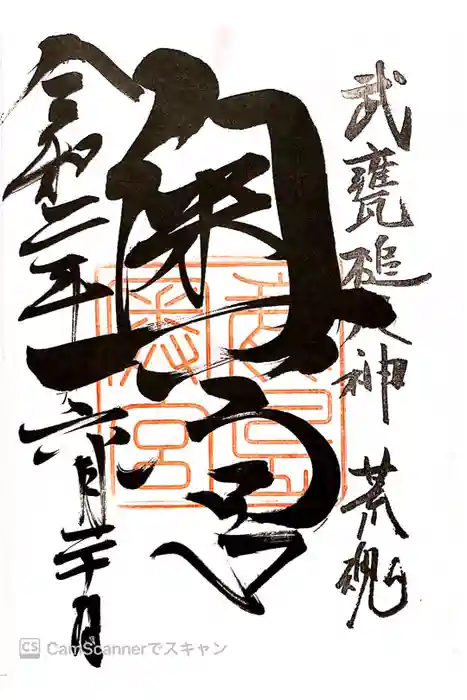 武甕槌大神 荒魂
奥宮
令和二年六月二十日
CS CamScannerでスキャン